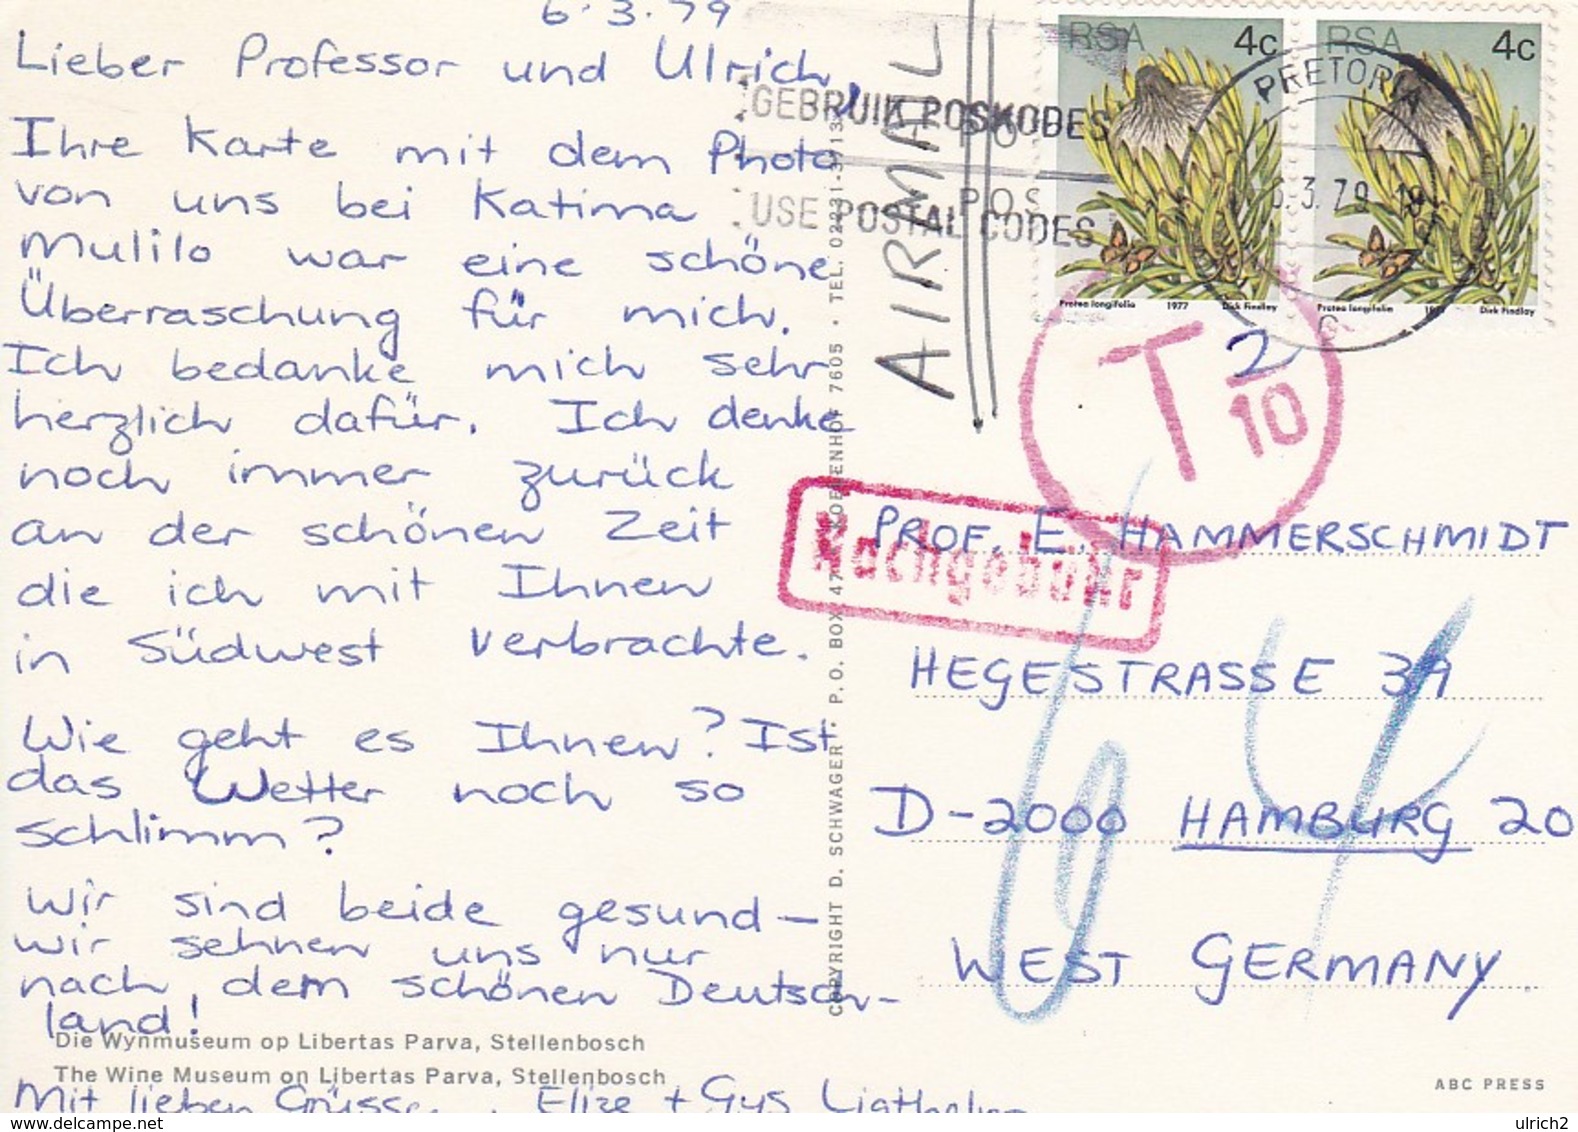 6.3.79
Lieber Professor und Ulrich,
Ihre Karte mit dem Photo
von uns bei Katima
Mulilo war eine schöne
Überraschung für mich.
Ich bedanke mich sehr
herzlich dafür. Ich denke
noch immer zurück
an der schönen Zeit
die ich mit Ihnen
in Südwest verbrachte.
Wie geht es Ihnen? Ist
das Wetter noch so
schlimm?
Wir sind beide gesund –
wir sehnen uns nur
nach dem schönen Deutsch-
land!
Die Wynmuseum op Libertas Parva, Stellenbosch
The Wine Museum on Libertas Parva, Stellenbosch
Mit lieben Grüssen, Elize + Gys
COPYRIGHT D. SCHWAGER · P.O. BOX KOELENHOF 7605 · TEL.
AIRMAIL
GEBRUIK POSKODES
USE POSTAL CODES
RSA 4c
Protea longifolia 1977 Dick Findlay
RSA 4c
Protea longifolia 1977 Dick Findlay
PRETORIA
6.3.79
T 2/10
Nachgebühr
PROF. E. HAMMERSCHMIDT
HEGESTRASSE 39
D-2000 HAMBURG 20
WEST GERMANY.
ABC PRESS
www.delcampe.net
ulrich2